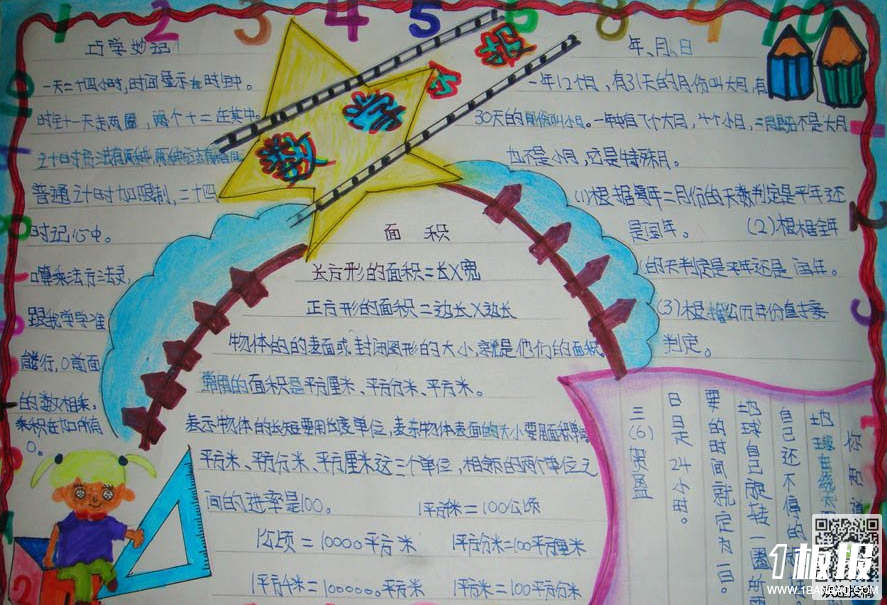 1 2 3 4 5 6 8 9 10
数学小报
巧学妙记
一天二十四小时,时间显示在时间中。
时针一天走两圈,两个十二在其中。
普通计时加限制,二十四
时记心中。
口算乘法方法灵,
跟我学学准
能行,0前面
的数相乘,
0。
年、月、日
一年12个月,有31天的月份叫大月,有
30天的月份叫小月。一年中有7个大月,4个小月,二月既不是大月
也不是小月,这是特殊月。
(1)根据每年二月份的天数判定是平年还
是闰年。 (2)根据全年
的天判定是平年还是闰年。
(3)根据公历年份直接
判定。
面 积
长方形的面积=长X宽
正方形的面积=边长X边长
物体的的表面或封闭图形的大小,就是他们的面积。
常用的面积是平方厘米、平方分米、平方米。
表示物体的长短要用长度单位,表示物体表面的大小要用面积单位
平方米、平方分米、平方厘米这三个单位,相邻的两个单位之
间的进率是100。 1平方千米=100公顷
1公顷=10000平方米 1平方分米=100平方厘米
1平方千米=1000000。平方米 1平方米=100平方分米
你知道
地球在绕太
自己还不停的
地球自己旋转一圈所
要的时间就定为一日。
日是24小时。
三(6)贺盈
1板报
WWW.1BANBAO.COM